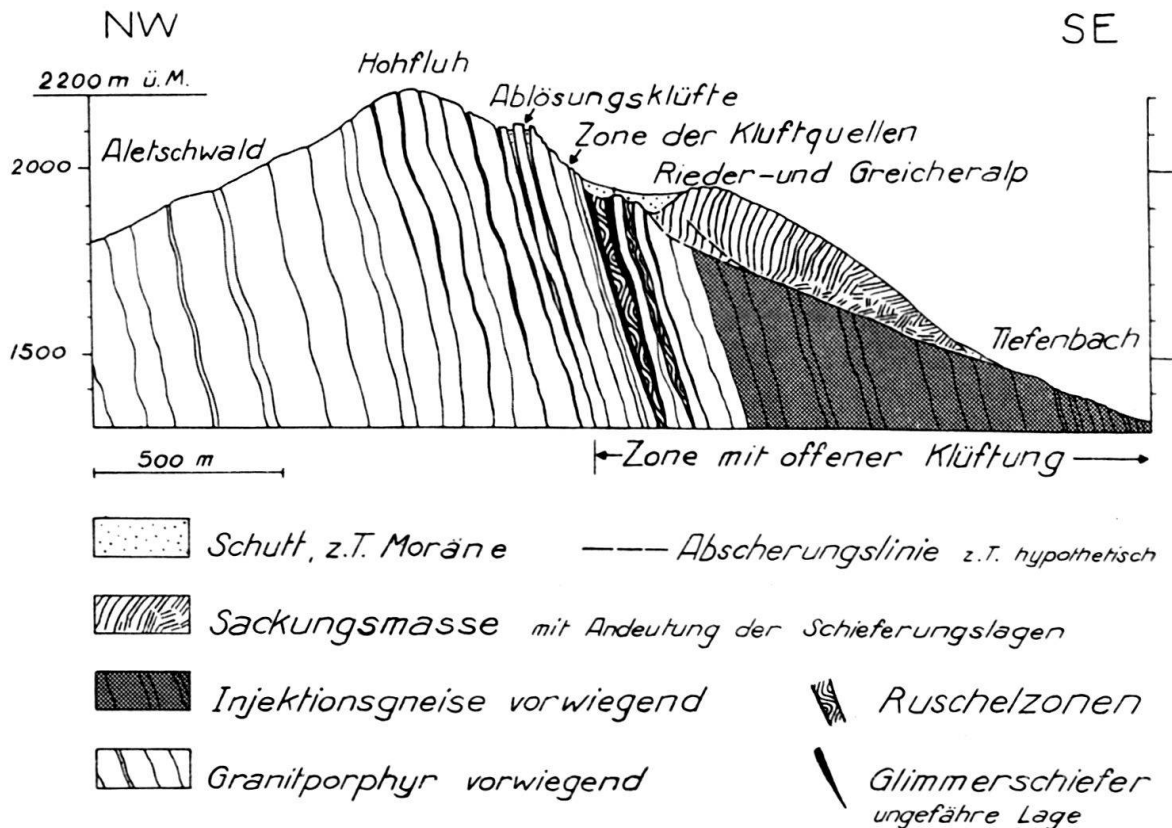 NW
SE
2200 m ü. M.
Hohfluh
Ablösungsklüfte
Zone der Kluftquellen
Aletschwald
2000
Rieder- und Greicheralp
1500
Tiefenbach
500 m
Zone mit offener Klüftung
Schutt, z.T. Moräne
Abscherungslinie z.T. hypothetisch
Sackungsmasse mit Andeutung der Schieferungslagen
Injektionsgneise vorwiegend
Ruschelzonen
Granitporphyr vorwiegend
Glimmerschiefer
ungefähre Lage